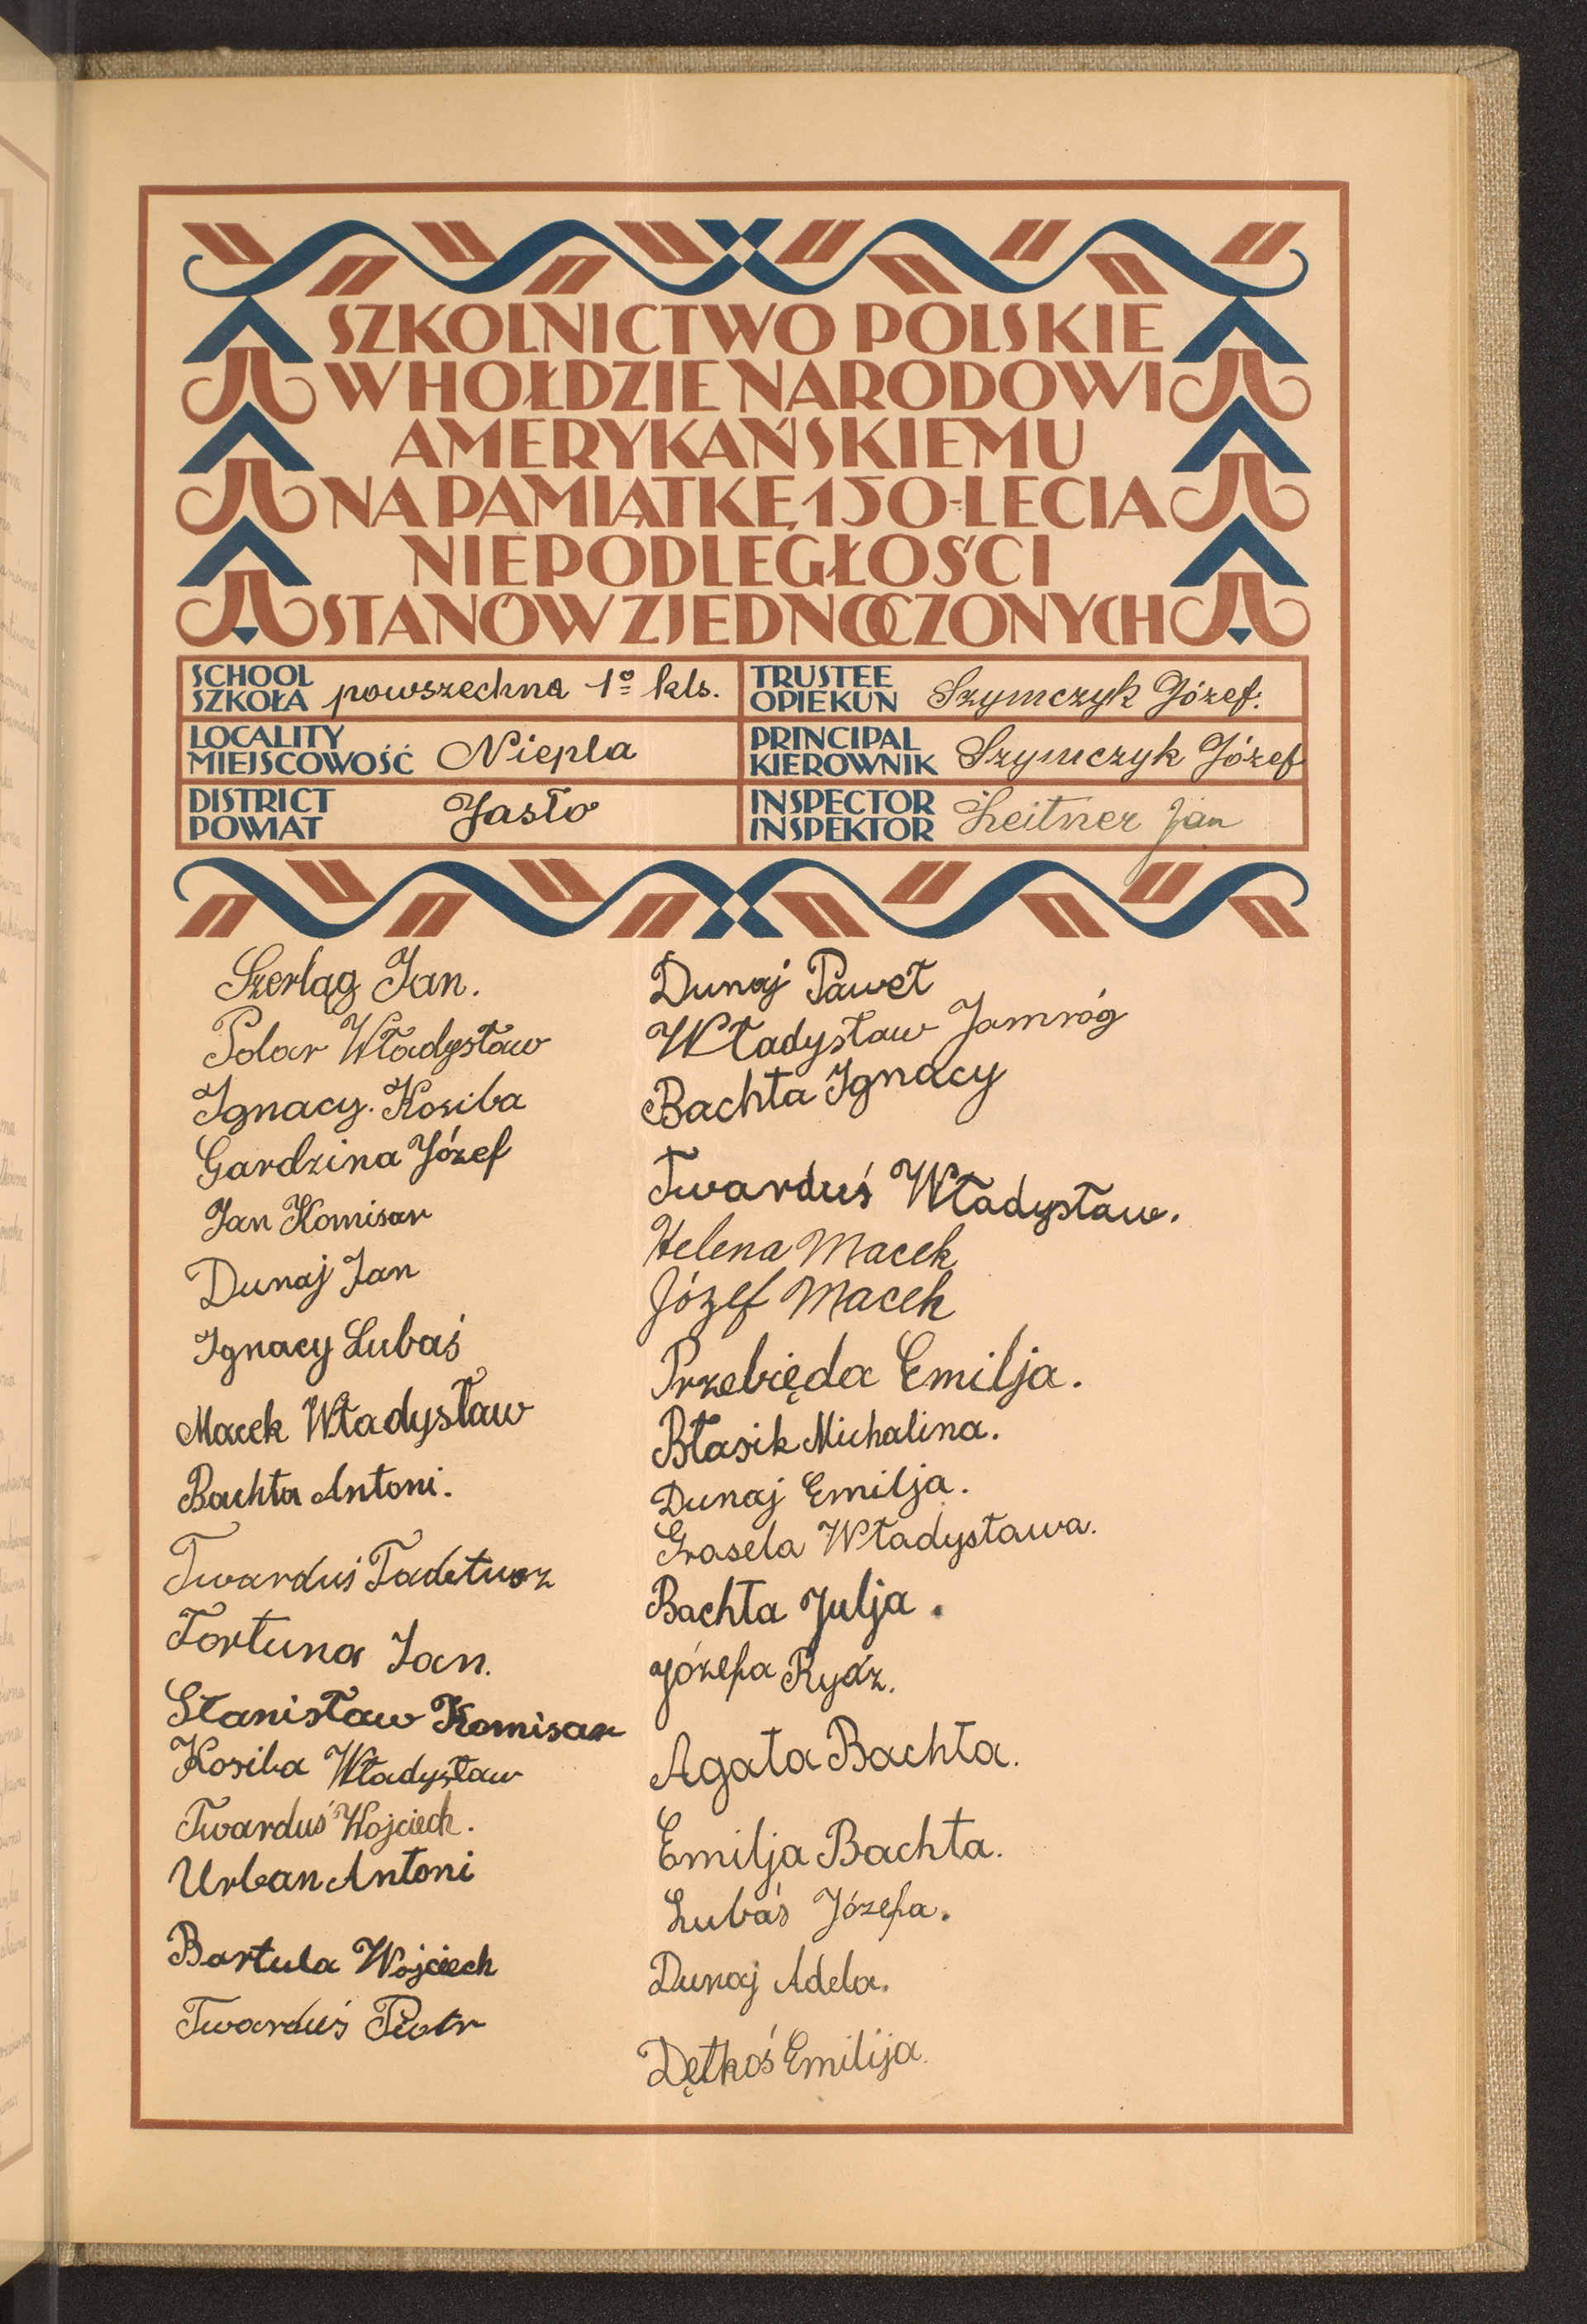 SZKOLNICTWO POLSKIE
W HOŁDZIE NARODOWI
AMERYKAŃSKIEMU
NA PAMIĄTKĘ 150-LECIA
NIEPODLEGŁOŚCI
STANÓW ZJEDNOCZONYCH
SCHOOL
SZKOŁA powszechna 1º kls.
TRUSTEE
OPIEKUN Szymczyk Józef.
LOCALITY
MIEJSCOWOŚĆ Niepla
PRINCIPAL
KIEROWNIK Szymczyk Józef
DISTRICT
POWIAT Jasło
INSPECTOR
INSPEKTOR Leitner Jan
Szerląg Jan.
Polar Władysław
Ignacy. Kosiba
Gardzina Józef
Jan Komisar
Dunaj Jan
Ignacy Lubaś
Macek Władysław
Bachta Antoni.
Twarduś Tadetusz
Fortuna Jan.
Stanisław Komisar
Kosiba Władysław
Twarduś Wojciech.
Urban Antoni
Bartula Wojciech
Twarduś Piotr
Dunaj Paweł
Władysław Jamróg
Bachta Ignacy
Twarduś Władysław.
Helena Macek
Józef Macek
Przebięda Emilja.
Błasik Michalina.
Dunaj Emilja.
Grasela Władysława.
Bachta Julja.
Józefa Rydz.
Agata Bachta.
Emilja Bachta.
Lubaś Józefa.
Dunaj Adela.
Dętkoś Emilija.